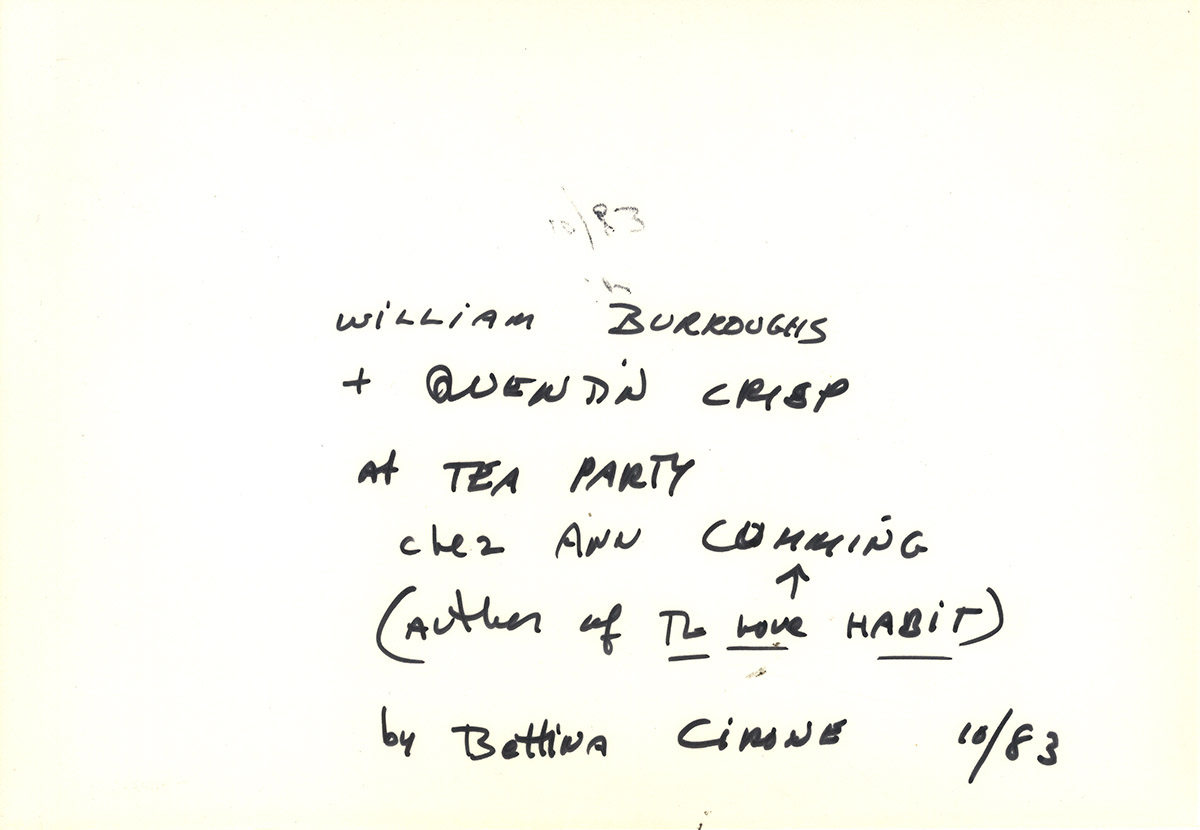 10/83
WiLLiAM BURROUGHS
+ QUENTiN CRISP
At TEA PARTY
chez ANN CUMMiNG
↑
(Author of The Love HABiT)
by BettiNA CiRONE 10/83